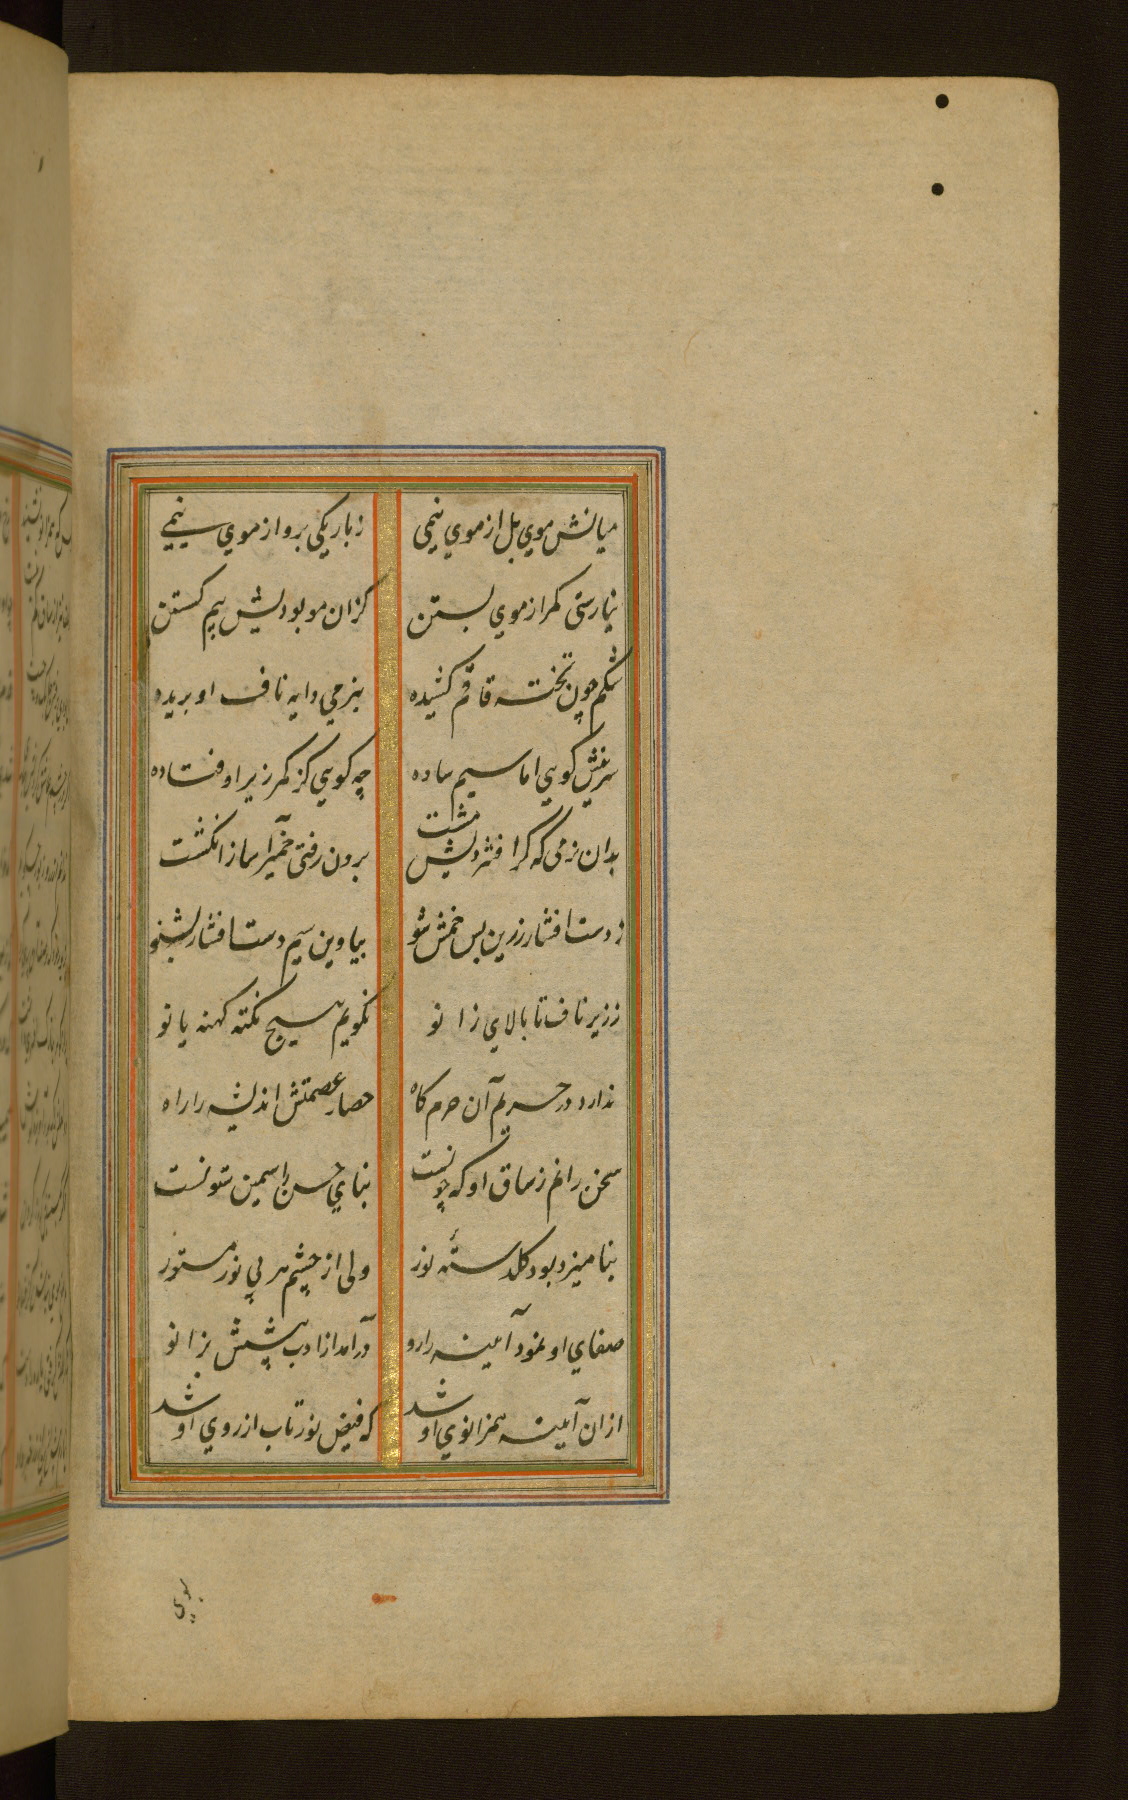 میانش موی بل از موی نیمی زباریکی برو از موی بیمی
نیارستی کمر از موی بستن کزان مو بودیش بیم کسستن
شکم چون تخته قاقم کشیده بنرمی دایه ناف او بریده
سرینش کوهی اما سیم ساده چه کوهی کز کمر زیر اوفتاده
بدان نرمی که کر افشردیش مشت برون رفتی خمیر آسا ز انکشت
ز دست افشار زرین بس خمش شو بیا وین سیم دست افشار بشنو
ز زیر ناف تا بالای زانو نکویم هیچ نکته کهنه یا نو
ندارد در حریم آن حرم کاه حصار عصمتش اندیشه را راه
سخن رانم ز ساق او که چونست بنای حسن را سیمین ستونست
بنامیزد بود کلدستهٔ نور ولی از چشم هر بی نور مستور
صفای او نمود آیینه را رو درآمد از ادب پیشش بزانو
ازان آیینه همزانوی او شد که فیض نور تاب از روی او شد